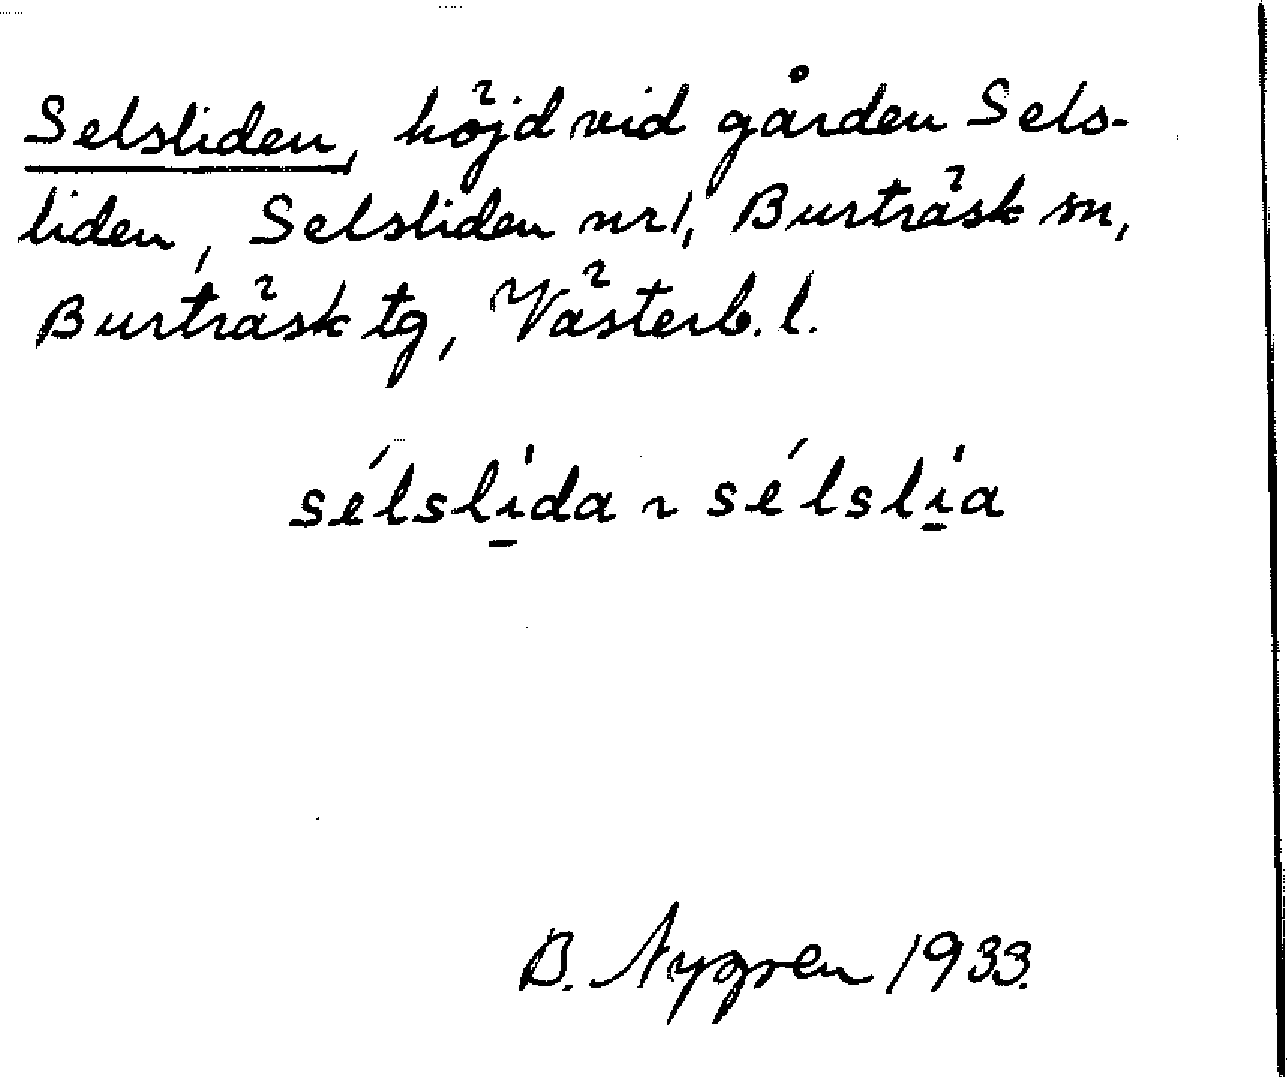 Selsliden, höjd vid gården Sels-
liden, Selsliden nr 1, Burträsk sn,
Burträsk tg, Västerb. l.
sélsli̱da ~ sélsli̱a
B. Nygren 1933.